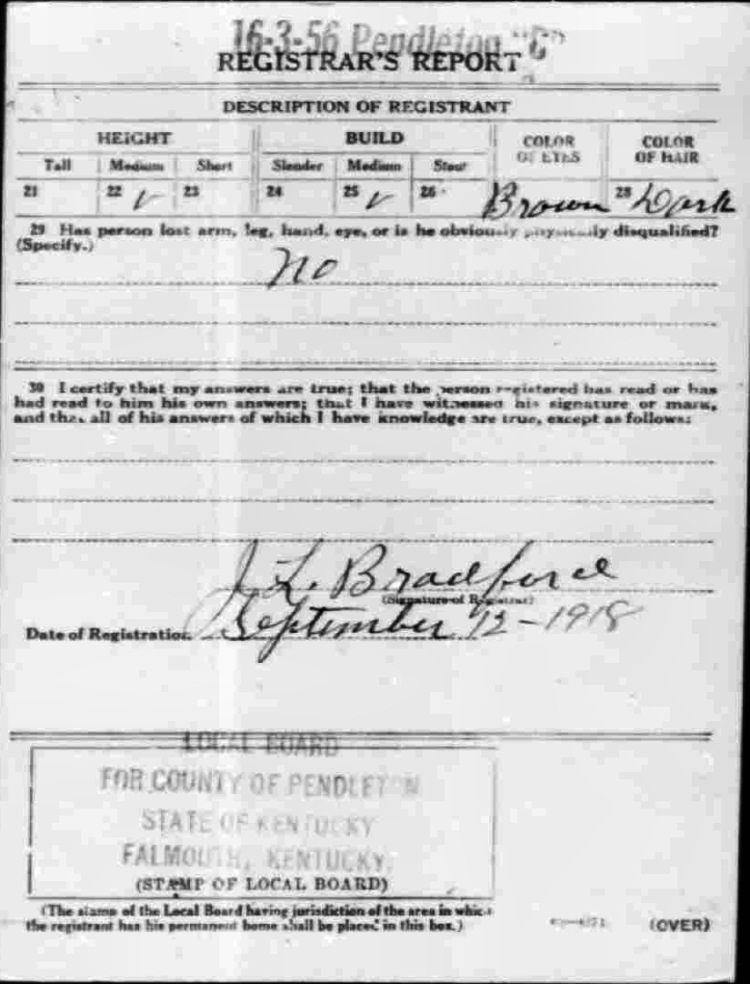 16-3-56 Pendleton "C"
REGISTRAR'S REPORT
DESCRIPTION OF REGISTRANT
HEIGHT BUILD COLOR OF EYES COLOR OF HAIR
Tall Medium Short Slender Medium Stout
21 22 ✓ 23 24 25 ✓ 26 Brown 28 Dark
29 Has person lost arm, leg, hand, eye, or is he obviously physically disqualified?
(Specify.)
No
30 I certify that my answers are true; that the person registered has read or has
had read to him his own answers; that I have witnessed his signature or mark,
and that all of his answers of which I have knowledge are true, except as follows:
J. L. Bradford
(Signature of Registrar)
Date of Registration September 12-1918
LOCAL BOARD
FOR COUNTY OF PENDLETON
STATE OF KENTUCKY
FALMOUTH, KENTUCKY.
(STAMP OF LOCAL BOARD)
(The stamp of the Local Board having jurisdiction of the area in which
the registrant has his permanent home shall be placed in this box.)
(OVER)